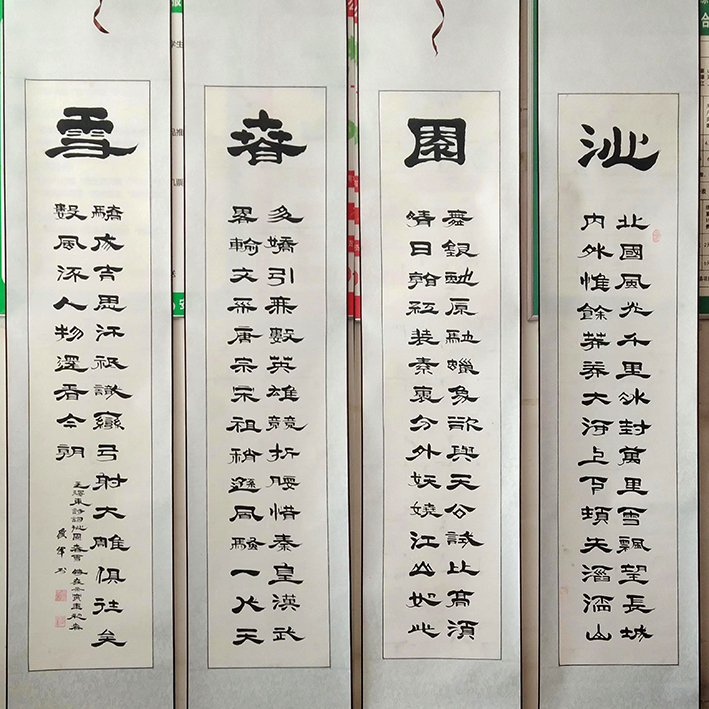 沁
北國風光千里冰封萬里雪飄望長城
内外惟餘莽莽大河上下頓失滔滔山
園
舞銀蛇原馳蠟象欲與天公試比高須
晴日看紅装素裹分外妖嬈江山如此
春
多嬌引無數英雄競折腰惜秦皇漢武
畧輸文采唐宗宋祖稍遜風騷一代天
雪
驕成吉思汗祇識彎弓射大雕俱往矣
數風流人物還看今朝
毛澤東詩詞沁園春雪